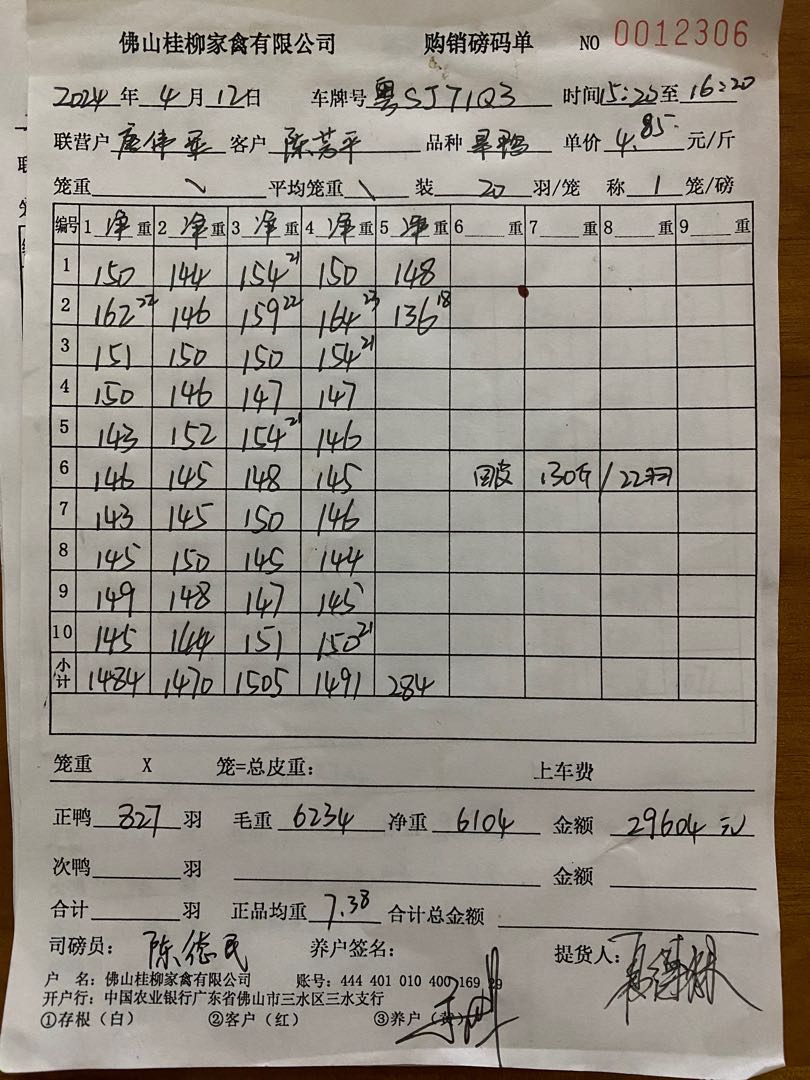 佛山桂柳家禽有限公司 购销磅码单 NO 0012306
2024年4月12日 车牌号 粤SJ71Q3 时间15:20至16:20
联营户 唐伟 客户 陈芳平 品种 单价 4.85 元/斤
笼重 \ 平均笼重 \ 装 20 羽/笼 称 1 笼/磅
编号 1 净 重 2 净 重 3 净 重 4 净 重 5 净 重 6 重 7 重 8 重 9 重
1 150 144 154 21 150 148
2 162 22 146 159 22 164 23 136 18
3 151 150 150 154 21
4 150 146 147 147
5 143 152 154 21 146
6 146 145 148 145 回皮 130斤/22羽
7 143 145 150 146
8 145 150 145 144
9 149 148 147 145
10 145 144 151 150 21
小计 1484 1470 1505 1491 284
笼重 X 笼=总皮重: 上车费
正鸭 827 羽 毛重 6234 净重 6104 金额 29604元
次鸭 羽 金额
合计 羽 正品均重 7.38 合计总金额
司磅员: 陈德民 养户签名: 提货人:
户 名: 佛山桂柳家禽有限公司 账号: 444 401 010 400 169 29
开户行: 中国农业银行广东省佛山市三水区三水支行
①存根(白) ②客户(红) ③养户(黄)